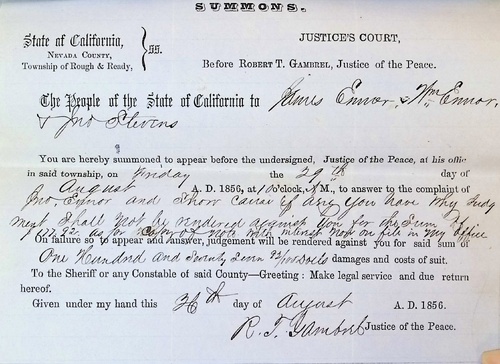 SUMMONS.
State of California,
NEVADA COUNTY,
Township of Rough & Ready,
ss.
JUSTICE'S COURT,
Before ROBERT T. GAMBREL, Justice of the Peace.
The People of the State of California to James Ennor, & Wm Ennor,
& Jno Stevins
You are hereby summoned to appear before the undersigned, Justice of the Peace, at his offic
in said township, on Friday the 29th day of
August A. D. 1856, at 10 o'clock, A M., to answer to the complaint of
Jno. Ennor and Show cause if any you have why Judg
ment Shall not be rendered against you for the Sum of
177.92. as per Copy of Note with interest now on file in my office
On failure so to appear and answer, judgement will be rendered against you for said sum of
One Hundred and Seventy Seven 92/100 Dolls damages and costs of suit.
To the Sheriff or any Constable of said County—Greeting: Make legal service and due return
hereof.
Given under my hand this 26th day of August A. D. 1856.
R. T. Gambrel Justice of the Peace.